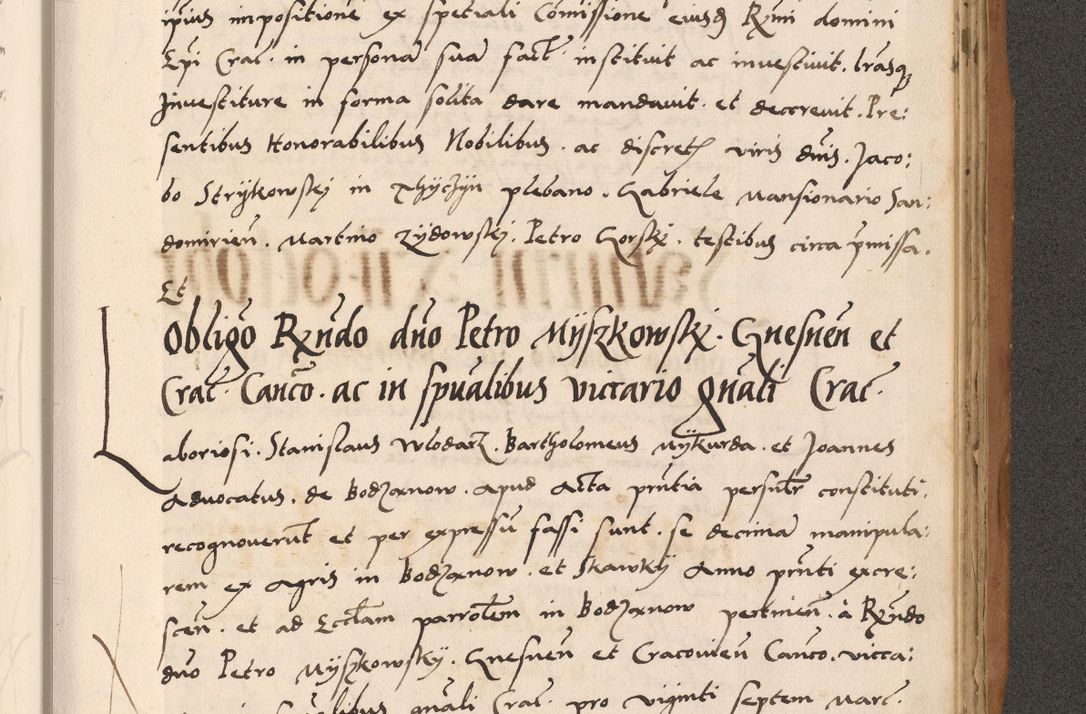 ipsius impositione ex speciali Comissione eiusq Rzmi domini
Epi Crac. in persona sua fact institvit ac investivit. lrasq
Investiture in forma solita dare mandavit. et decrevit. Pre:
sentibus Honorabilibus Nobilibus. ac discret viris dnis. Jaco:
bo Strijkowskj in plebano. Gabriele Mansionario San:
domirien. Martino Zijdowskj. Petro Gorskj. testibus circa pmissa.
Et
Obligo Rxndo dno Petro Mijszkowskj. Gnesnen et
Crac. Canco. ac in spualibus viccario gnali Crac.
Laboriosi. Stanislaus Wlodarz. Bartholomeus Mijkurda. et Joannes
Advocatus. de Bodzanow. Apud Acta pntia personlr constituti.
recognoverut et per expressu fassi sunt. se decima manipula:
rem ex Agris in Bodzanow. et Skawkij Anno pnti excre:
scen. et ad Eccliam parrolem in Bodzanow pertinen. à Rxndo
dno Petro Mijszkowskij. Gnesnen et Cracovien Canco. vicca:
in spualibus gnali Crac. pro viginti septem Marc.